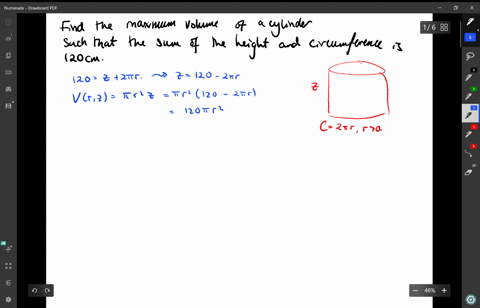 Numerade - Drawboard PDF
1/6
Find the maximum volume of a cylinder
such that the sum of the height and circumference is
120cm.
120 = z + 2πr. → z = 120 - 2πr
V(r,z) = πr² z = πr² (120 - 2πr)
= 120πr²
z
C = 2πr, r>0
46%